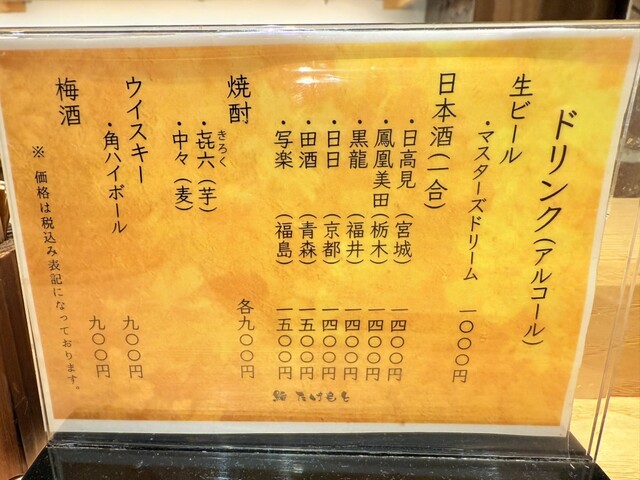 ドリンク(アルコール)
生ビール
・マスターズドリーム 一〇〇〇円
日本酒(一合)
・日高見 (宮城) 一四〇〇円
・鳳凰美田 (栃木) 一四〇〇円
・黒龍 (福井) 一四〇〇円
・日日 (京都) 一四〇〇円
・田酒 (青森) 一五〇〇円
・写楽 (福島) 一五〇〇円
焼酎 各九〇〇円
・㐂六(芋)
きろく
・中々(麦)
ウイスキー
・角ハイボール 九〇〇円
梅酒 九〇〇円
※ 価格は税込み表記になっております。
鮨